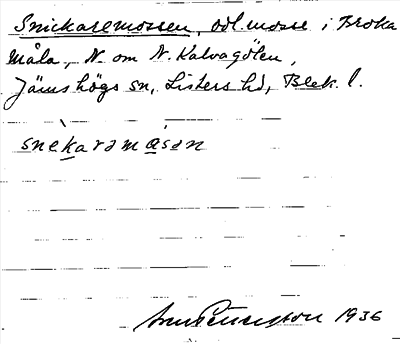 Snickaremossen, odl. mosse i Broka
måla, N. om N. Kalvagölen,
Jämshögs sn, Listers hd, Blek. l.
snekaramosən
1936